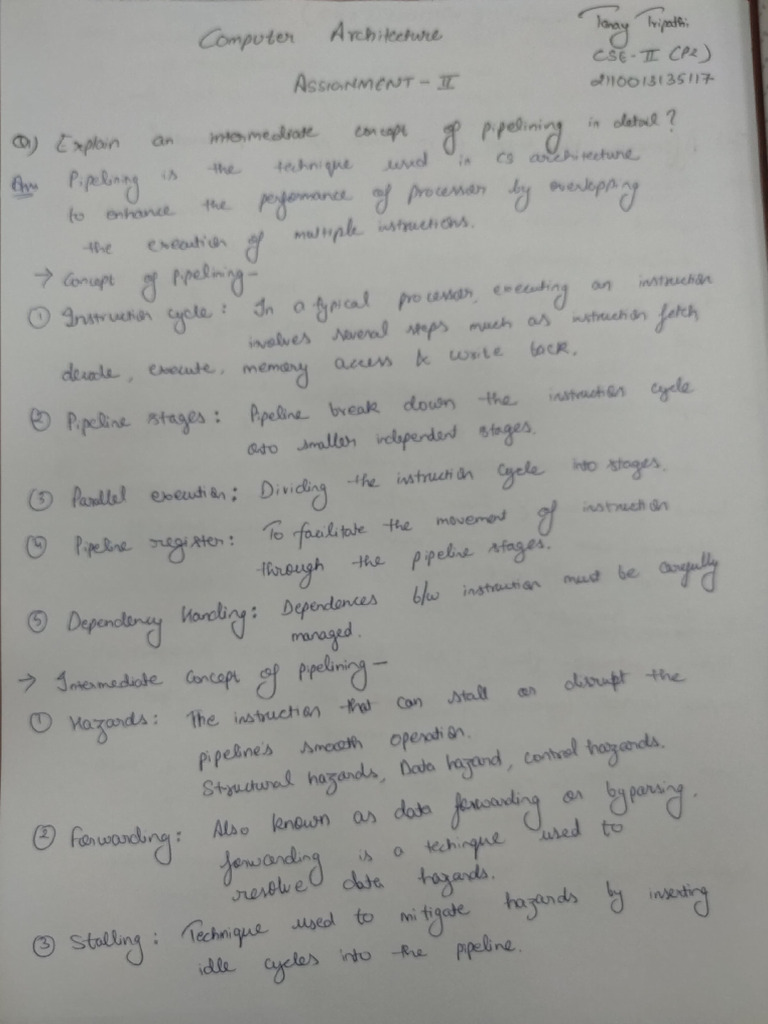 Computer Architecture
Tanay Tripathi
CSE-II (P2)
2110013135117
ASSIGNMENT - II
Q1) Explain an intermediate concept of pipelining in detail?
Ans Pipelining is the technique used in CS architecture
to enhance the performance of processor by overlapping
the execution of multiple instructions.
→ Concept of pipelining -
① Instruction cycle: In a typical processor, executing an instruction
involves several steps much as instruction fetch
decode, execute, memory access & write back.
② Pipeline stages: Pipeline break down the instruction cycle
into smaller independent stages.
③ Parallel execution: Dividing the instruction cycle into stages.
④ Pipeline register: To facilitate the movement of instruction
through the pipeline stages.
⑤ Dependency Handling: Dependences b/w instruction must be carefully
managed.
→ Intermediate concept of pipelining -
① Hazards: The instruction that can stall or disrupt the
pipeline's smooth operation.
Structural hazards, Data hazard, control hazards.
② Forwarding: Also known as data forwarding or byparsing,
forwarding is a techinque used to
resolve data hazards.
③ Stalling: Technique used to mitigate hazards by inserting
idle cycles into the pipeline.